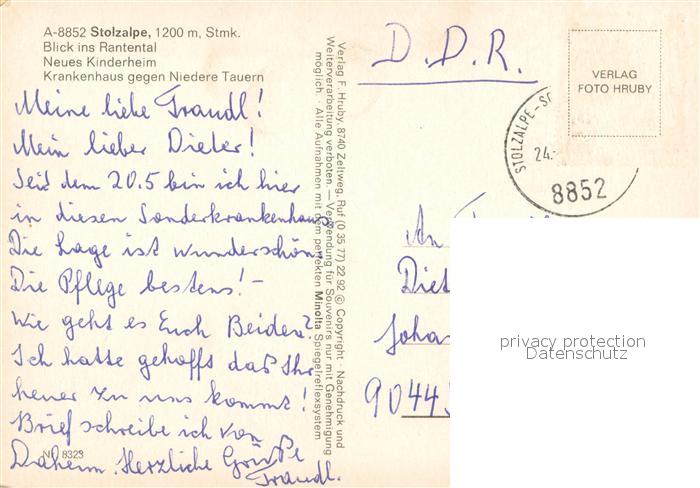 A-8852 Stolzalpe, 1200 m, Stmk.
Blick ins Rantental
Neues Kinderheim
Krankenhaus gegen Niedere Tauern
Meine liebe Traudl!
Mein lieber Dieter!
Seit dem 20.5 bin ich hier
in diesen Sonderkrankenhaus
Die Lage ist wunderschön,
Die Pflege bestens! –
Wie geht es Euch Beiden?
Ich hatte gehofft daß Ihr
heuer zu uns kommt!
Brief schreibe ich von
Daheim. Herzliche Grüße
Traudl.
Nr. 8323
Verlag F. Hruby, 8740 Zeltweg, Ruf (0 35 77) 22 92 © Copyright · Nachdruck und
Weiterverarbeitung verboten. — Verwendung für Souvenirs nur mit Genehmigung
möglich. · Alle Aufnahmen mit dem perfekten Minolta Spiegelreflexsystem
D.D.R.
VERLAG
FOTO HRUBY
STOLZALPE-
24.
8852
An
Diet
Joha
9044
privacy protection
Datenschutz